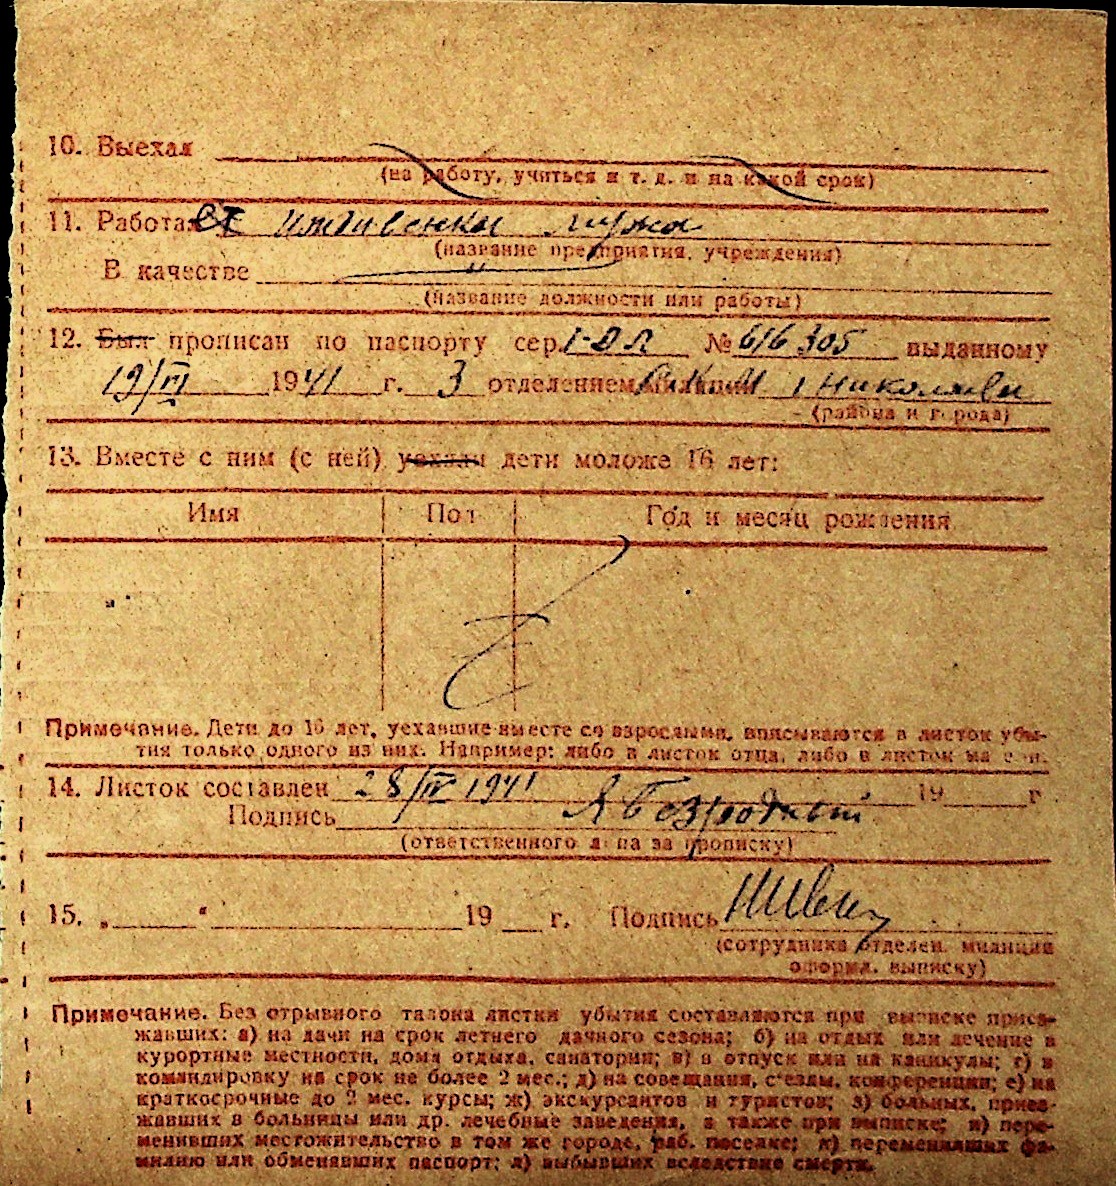 10. Выехал
(на работу, учиться и т. д. и на какой срок)
11. Работает иждивенка мужа
(название предприятия, учреждения)
В качестве "
(название должности или работы)
12. Был прописан по паспорту сер. I-ОЛ № 616305 выданному
19/VI 1941 г. 3 отделением милиции г Николаеви
(района и города)
13. Вместе с ним (с ней) уехали дети моложе 16 лет:
Имя Пол Год и месяц рождения
Примечание. Дети до 16 лет, уехавшие вместе со взрослыми, вписываются в листок убы-
тия только одного из них. Например: либо в листок отца, либо в листок матери.
14. Листок составлен 28/IV 1941 19 г
Подпись Я Безродный
(ответственного лица за прописку)
15. „ “ 19 г. Подпись
(сотрудника отделен. милиции
оформл. выписку)
Примечание. Без отрывного талона листки убытия составляются при выписке приез-
жавших: а) на дачи на срок летнего дачного сезона; б) на отдых или лечение в
курортные местности, дома отдыха, санатории; в) в отпуск или на каникулы; г) в
командировку на срок не более 2 мес.; д) на совещания, с'езды, конференции; е) на
краткосрочные до 2 мес. курсы; ж) экскурсантов и туристов; з) больных, приез-
жавших в больницы или др. лечебные заведения, а также при выписке; и) пере-
менивших местожительство в том же городе, раб. поселке; к) переменивших фа-
милию или обменявших паспорт; л) выбывших вследствие смерти.